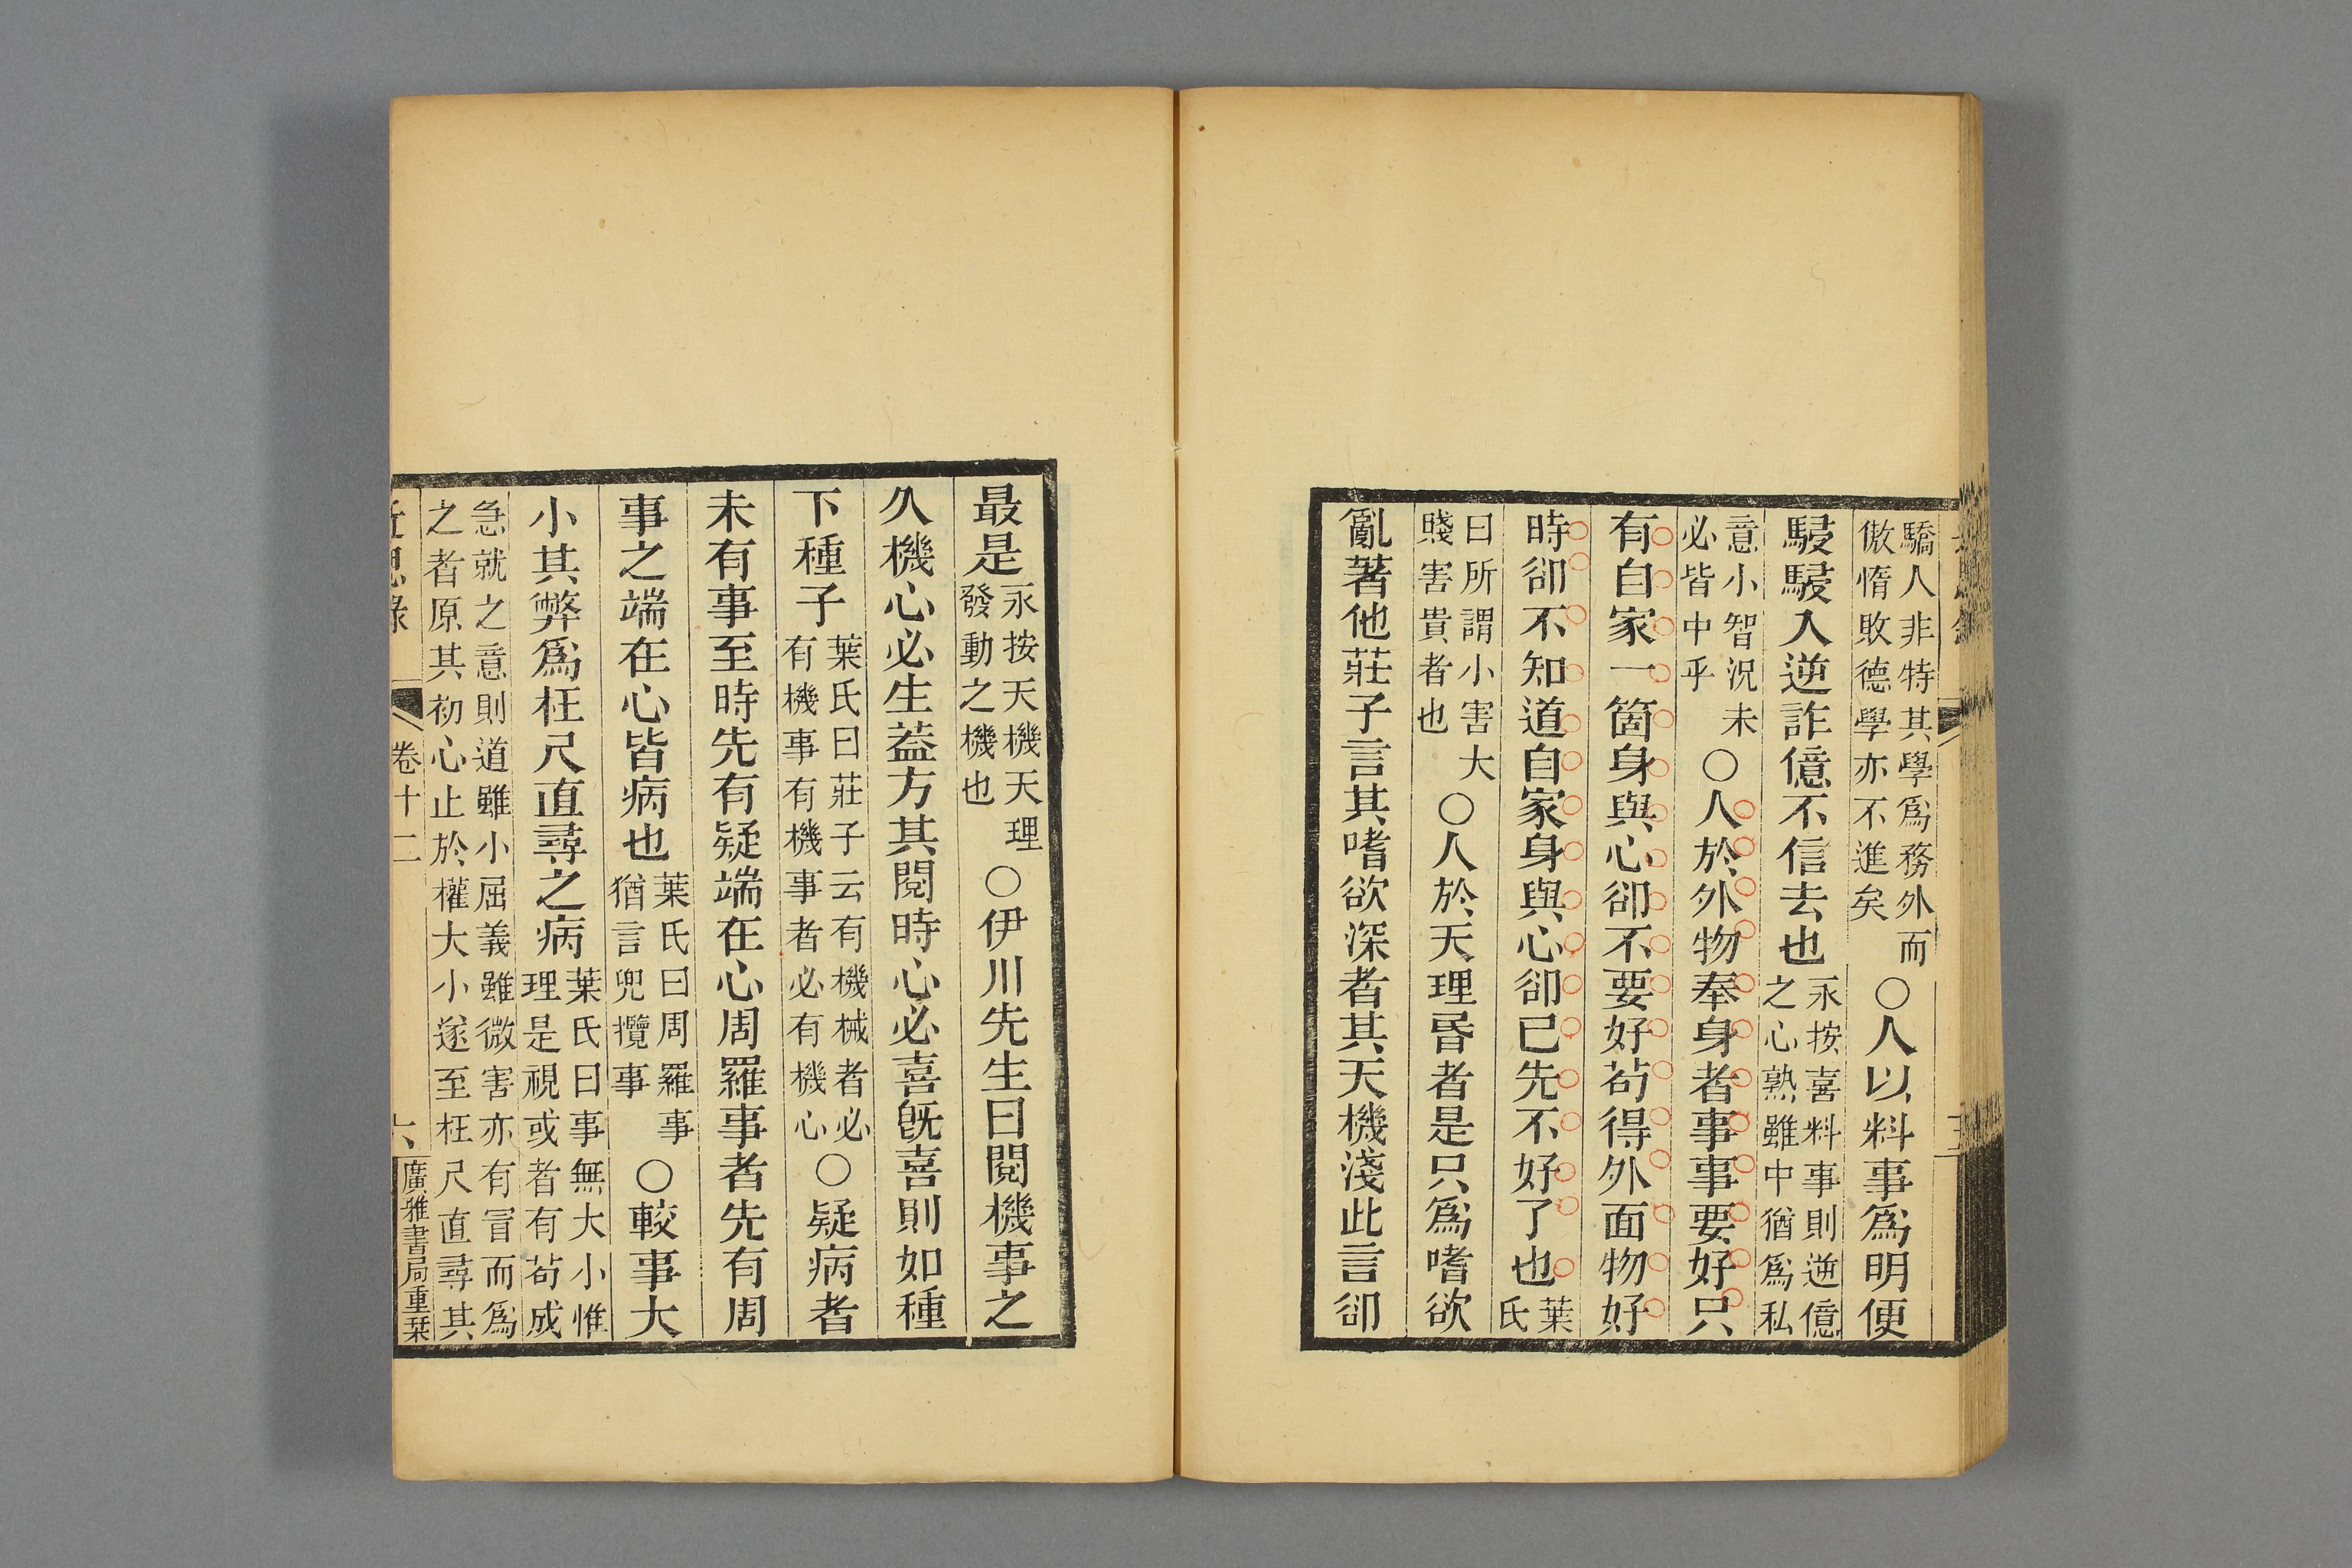 驕人非特其學爲務外而
傲惰敗德學亦不進矣
○人以料事爲明便
駸駸入逆詐億不信去也
永按喜料事則逆億
之心熟雖中猶爲私
意小智況未
必皆中乎
○人於外物奉身者事事要好只
有自家一箇身與心卻不要好茍得外面物好
時卻不知道自家身與心卻已先不好了也
葉
氏
曰所謂小害大
賤害貴者也
○人於天理昏者是只爲嗜欲
亂著他莊子言其嗜欲深者其天機淺此言卻
最是
永按天機天理
發動之機也
○伊川先生曰閱機事之
久機心必生葢方其閱時心必喜旣喜則如種
下種子
葉氏曰莊子云有機械者必
有機事有機事者必有機心
○疑病者
未有事至時先有疑端在心周羅事者先有周
事之端在心皆病也
葉氏曰周羅事
猶言兜攬事
○較事大
小其弊爲枉尺直尋之病
葉氏曰事無大小惟
理是視或者有茍成
急就之意則道雖小屈義雖微害亦有冒而爲
之者原其初心止於權大小遂至枉尺直尋其
近思錄
卷十二
六
廣雅書局重栞